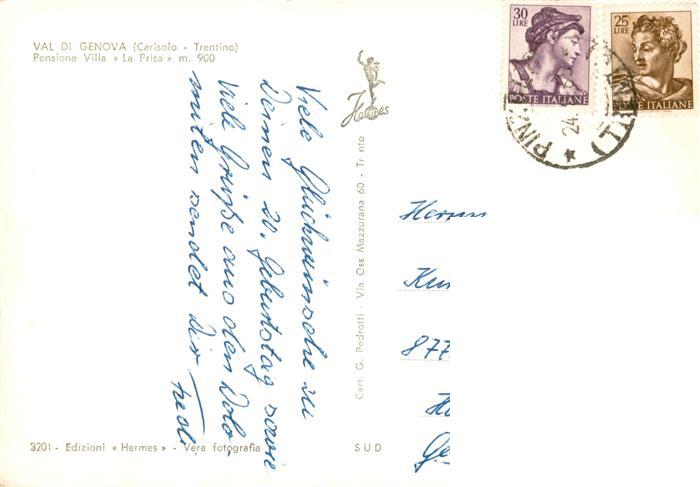 VAL DI GENOVA (Carisolo - Trentino)
Pensione Villa « La Prisa » m. 900
Hermes
30
LIRE
POSTE ITALIANE
25
LIRE
POSTE ITALIANE
PINZ
24.
(T
Viele Glückwünsche zu
Deinem 20. Geburtstag sowie
Viele Grüße aus den Dolo-
miten sendet Dir
Cart. G. Pedrotti - Via Oss Mazzurana 60 - Tr nto
Herrn
877
3201 - Edizioni « Hermes » - Vera fotografia
SUD